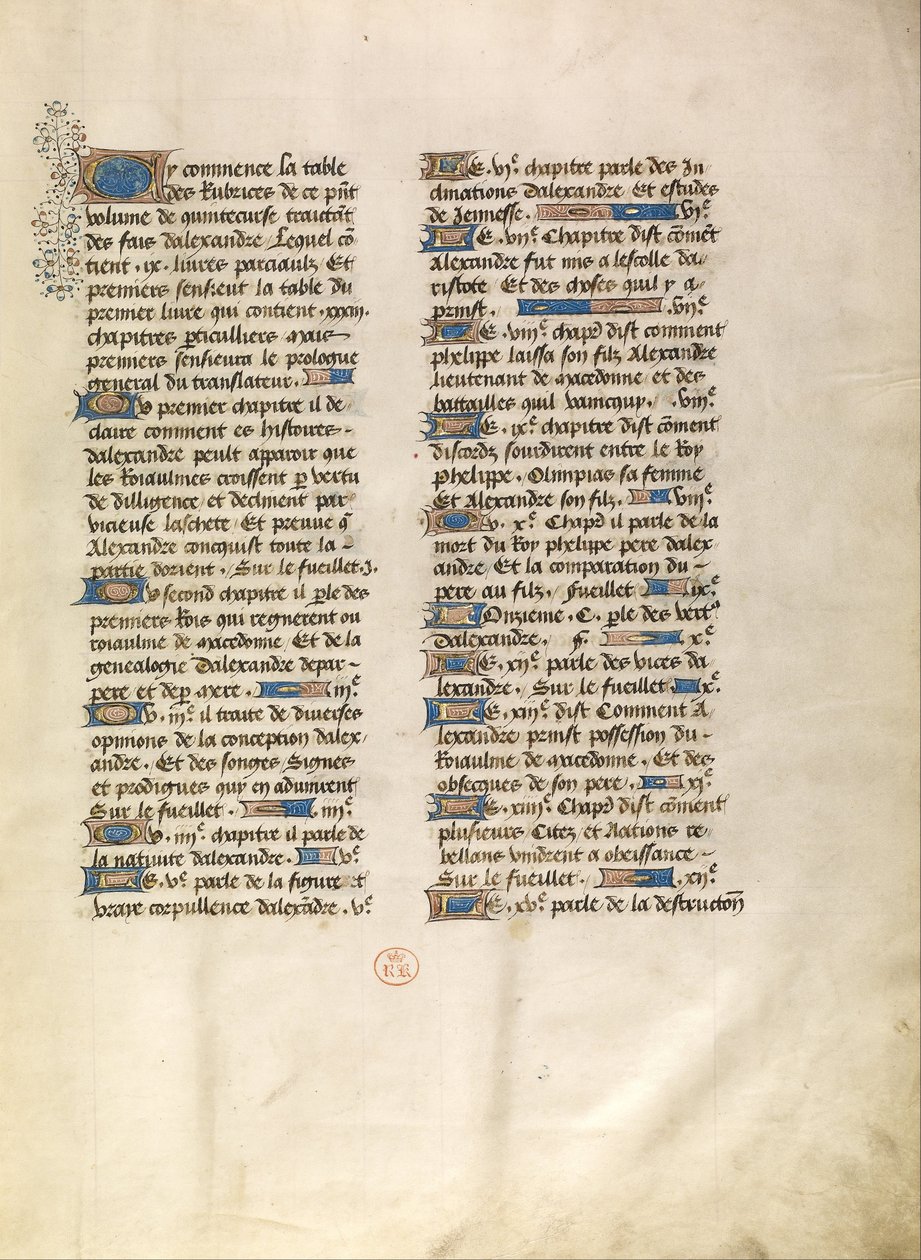 Cy commence la table
des Rubrices de ce pñt
volume de quintecurse traictãt
des fais dalexandre / Lequel cõ/
tient .ix. livres parciaulz / Et
premiers sensieut la table du
premier livre qui contient .xxxiii.
chapitres ꝑticulliers . mais
premiers sensieura le prologue
general du translateur .
Ou premier chapitre il de/
claire comment es histoires -
dalexandre peult apparoir que
les Roiaulmes croissent ꝑ vertu
de dilligence / et declinent par
vicieuse laschete / Et preuve q̃
Alexandre concquist toute la -
partie dorient ./ Sur le fueillet .J.
Ou second chapitre il ꝑle des
premiers Rois qui regnerent ou
roiaulme de macedonne / Et de la
genealogie Dalexandre depar -
pere et deꝑ mere . iij.ᵉ
Ou .iij.ᵉ il traite de diverses
opinions de la conception dalex/
andre . Et des songes / Signes
et prodigues quy en advinrent
Sur le fueillet . .iiij.ᵉ
Ou .iiij.ᵉ chapitre il parle de
la nativite dalexandre . v.ᵉ
LE .v.ᵉ parle de la figure et
vraye corpullence dalexãdre . v.ᵉ
LE .vj.ᵉ chapitre parle des In/
clinations Dalexandre / Et estudes
de Jennesse . vj.ᵉ
LE .vij.ᵉ Chapitre dist cõmẽt
Alexandre fut mis a lescolle da/
ristote / Et des choses quil y a/
prinst . .vij.ᵉ
LE .viij.ᵉ chapr̃ dist comment
phelippe laissa son filz Alexandre
lieutenant de macedonne / et des
battailles quil vaincquy ./ .viij.ᵉ
LE .ix.ᵉ chapitre dist cõment
discordz sourdirent entre le Roy
Phelippe . Olimpias sa femme
Et Alexandre son filz . viij.ᵉ
Ou . x.ᵉ Chapr̃ il parle de la
mort du Roy phelippe pere dalex/
andre / Et la comparation du -
pere au filz ./ Fueillet ix.ᵉ
LE Onzieme . C . ꝑle des vertᵘˢ
Dalexandre ./ f. x.ᵉ
LE .xij.ᵉ parle des vices da/
lexandre ./ Sur le fueillet . x.ᵉ
LE .xiij.ᵉ dist Comment A/
lexandre prinst possession du -
Roiaulme de macedonne . Et des
obsecques de son pere . xj.ᵉ
LE .xiiij.ᵉ Chapr̃ dist cõment
plusieurs Citez et Nations re/
bellans vindrent a obeissance -
Sur le fueillet . .xij.ᵉ
LE .xv.ᵉ parle de la destructõn
RK